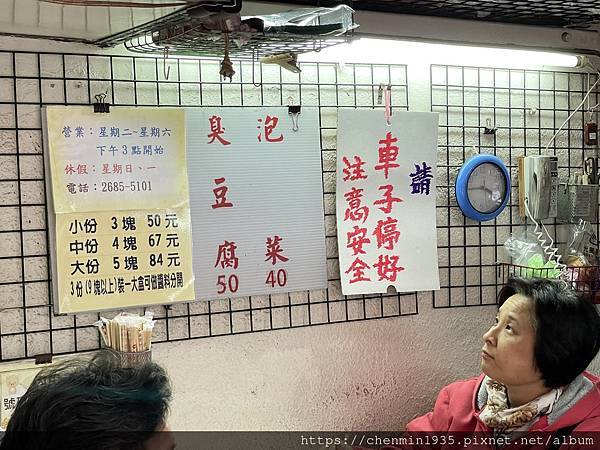 營業：星期二~星期六
下午3點開始
休假：星期日、一
電話：2685-5101
小份 3塊 50元
中份 4塊 67元
大份 5塊 84元
3份(9塊以上)裝一大盒可做醬料分開
臭豆腐 50
泡菜 40
請
車子停好
注意安全
https://chenmin1935.pixnet.net/album